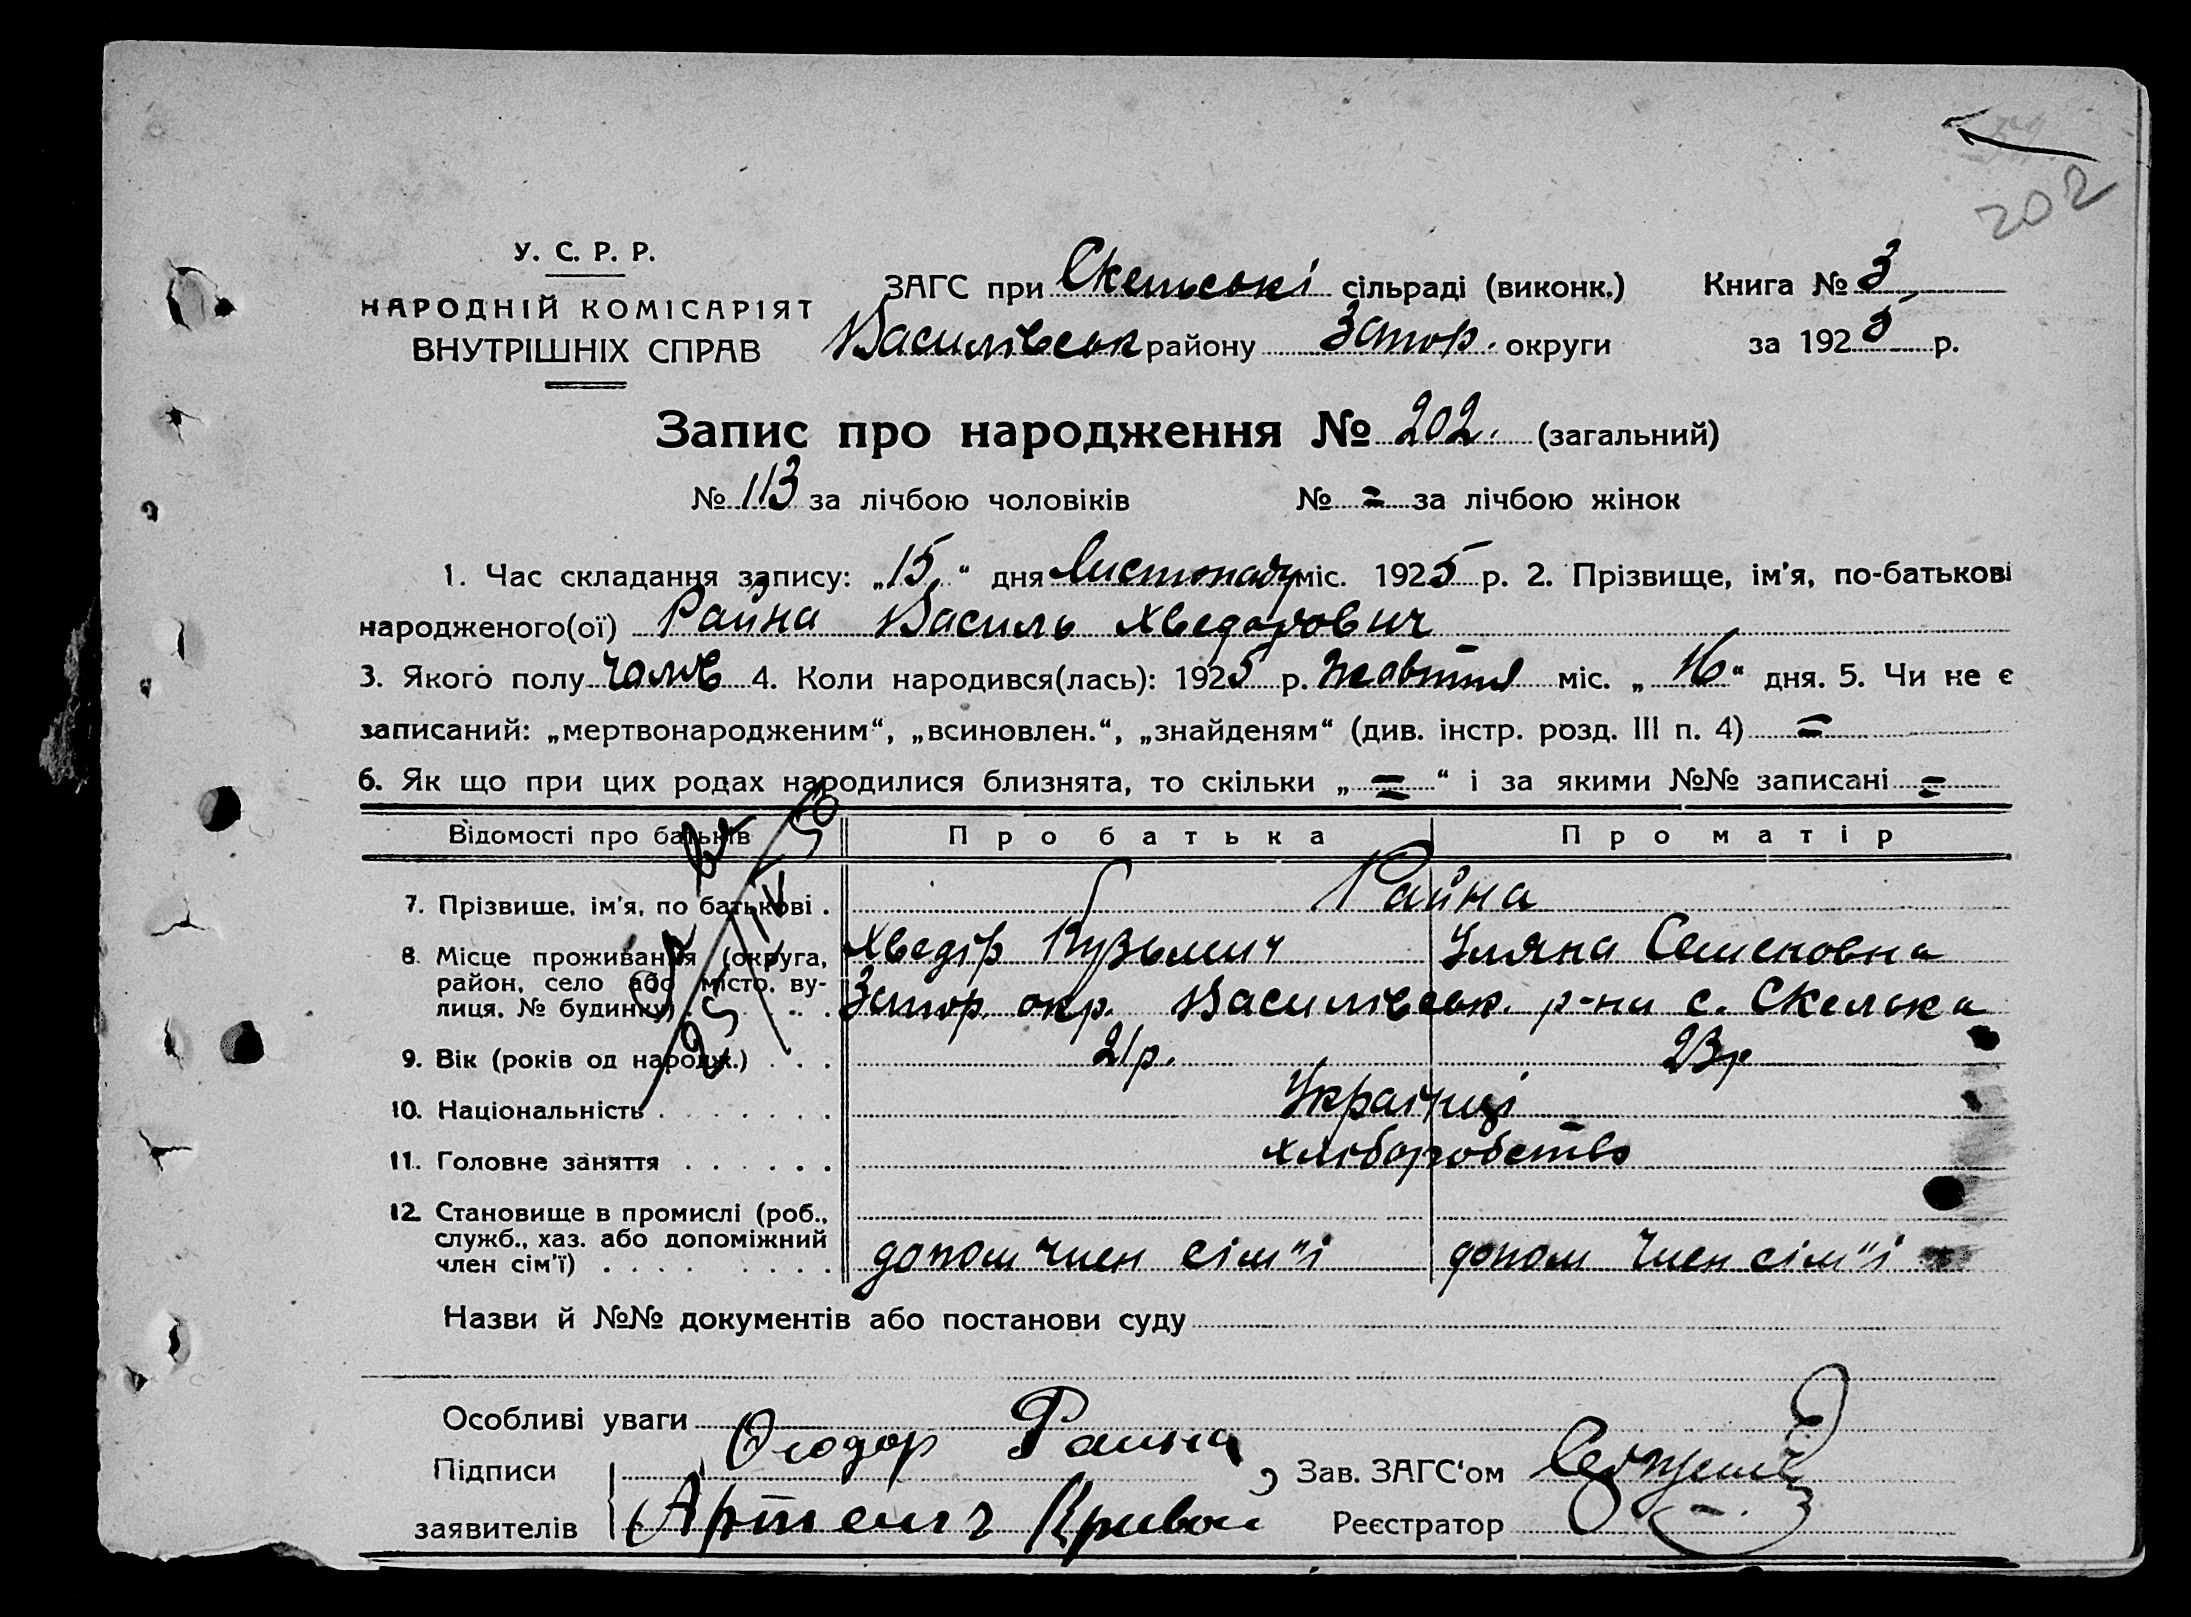 202
У. С. Р. Р.
НАРОДНІЙ КОМІСАРІЯТ
ВНУТРІШНІХ СПРАВ
ЗАГС при Скельські сільраді (виконк.) Книга № 3
Василівськ району Запор. округи за 1925 р.
Запис про народження № 202. (загальний)
№ 113 за лічбою чоловіків № = за лічбою жінок
1. Час складання запису: „15." дня листопаду міс. 1925 р. 2. Прізвище, ім'я, по-батькові
народженого(ої) Райна Василь Хведорович
3. Якого полу чолов 4. Коли народився(лась): 1925 р. Жовтня міс. „16" дня. 5. Чи не є
записаний: „мертвонародженим", „всиновлен.", „знайденям" (див. інстр. розд. III п. 4) =
6. Як що при цих родах народилися близнята, то скільки „=" і за якими №№ записані =
Відомості про батьків Про батька Про матір
7. Прізвище, ім'я, по батькові . Райна
Хведір Кузьмич Уляна Семеновна
8. Місце проживання (округа,
район, село або місто, ву-
лиця, № будинку) . . . . Запор. окр. Василівськ. р-ни с. Скелька
9. Вік (років од народж.) . . . 21р. 23р
10. Національність . . . . . . . Українці
11. Головне заняття . . . . . . хліборобство
12. Становище в промислі (роб.,
служб., хаз. або допоміжний
член сім'ї) . . . . . . . . допом член сім"ї допом член сім"ї
Назви й №№ документів або постанови суду
Особливі уваги
Підписи Феодор Раина, Зав. ЗАГС'ом
заявителів Артемич Кривой Реєстратор